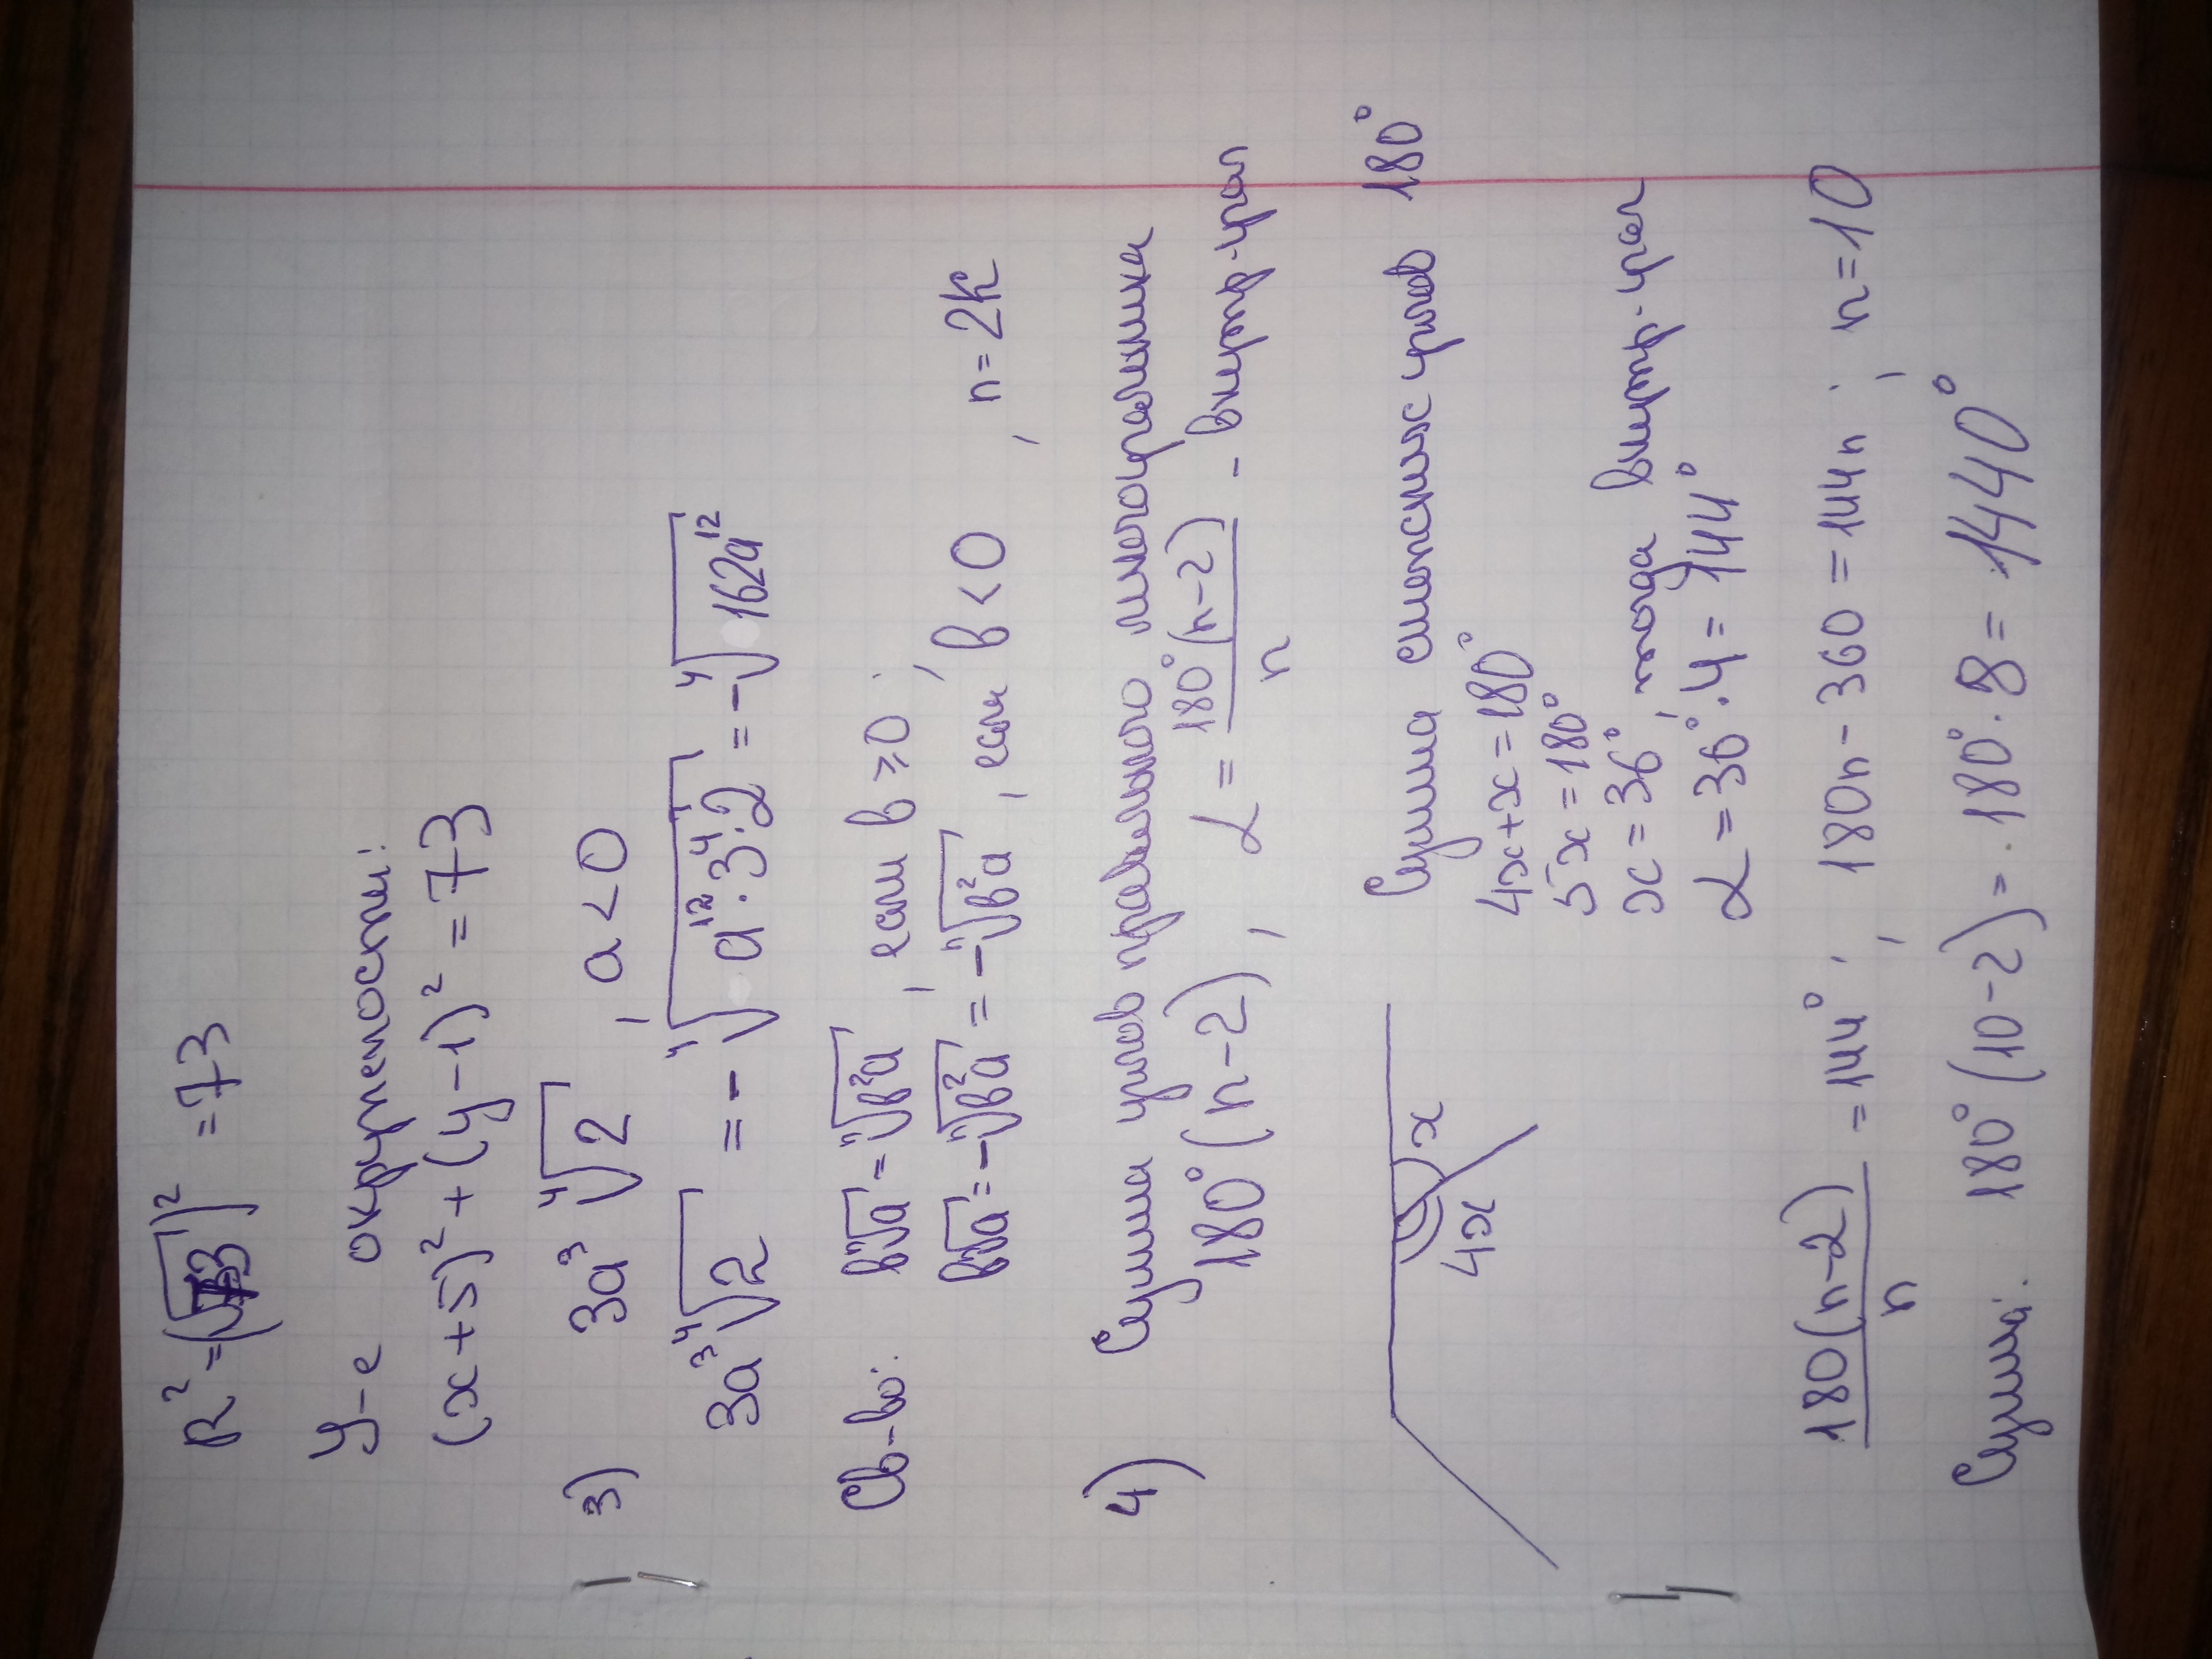 R² = (√73)² = 73
У-е окружности:
(x+5)² + (y-1)² = 73
3) 3a³ ⁴√2 , a < 0
3a³ ⁴√2 = - ⁴√a¹²·3⁴·2 = - ⁴√162a¹²
Св-во: b ⁿ√a = ⁿ√bⁿa , если b ≥ 0;
b ⁿ√a = - ⁿ√bⁿa = - ⁿ√bⁿa , если b < 0 , n = 2k
4) Сумма углов правильного многоугольника
180°(n-2) , α = 180°(n-2)/n - внутр. угол
Сумма смежных углов 180°
4x + x = 180°
5x = 180°
x = 36° , тогда внутр. угол
α = 36°·4 = 144°
x
4x
180(n-2)/n = 144° ; 180n - 360 = 144n ; n = 10
Сумма: 180°(10-2) = 180°·8 = 1440°